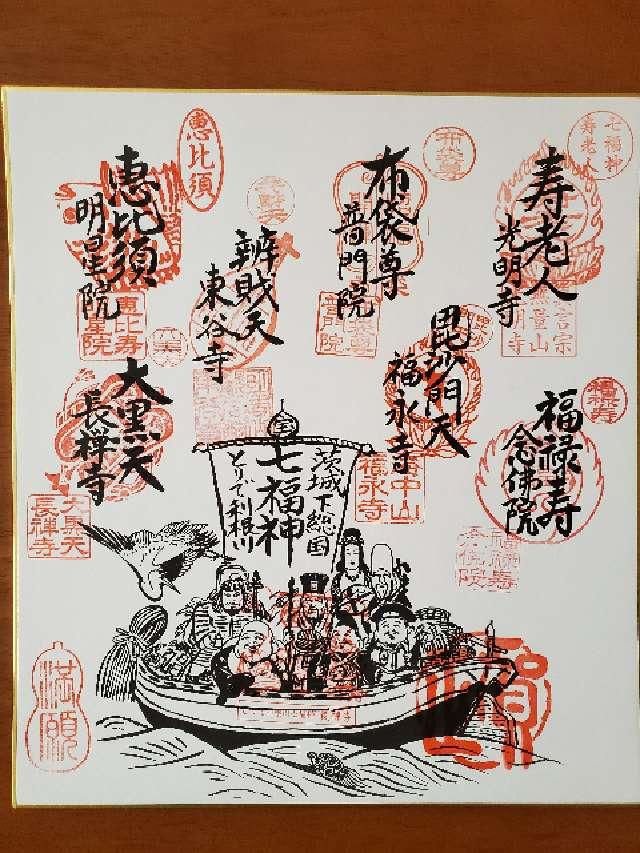 七福神
寿老人
寿老人
光明寺
布袋尊
布袋尊
普門院
恵比須
恵比須
明星院
恵比寿
明星院
辨財天
東谷寺
毘沙門天
福永寺
福永寺
大黒天
長禅寺
大黒天
長禅寺
福禄寿
福禄寿
念佛院
福禄寿
念佛院
茨城下総国
七福神
とりで利根川
満願